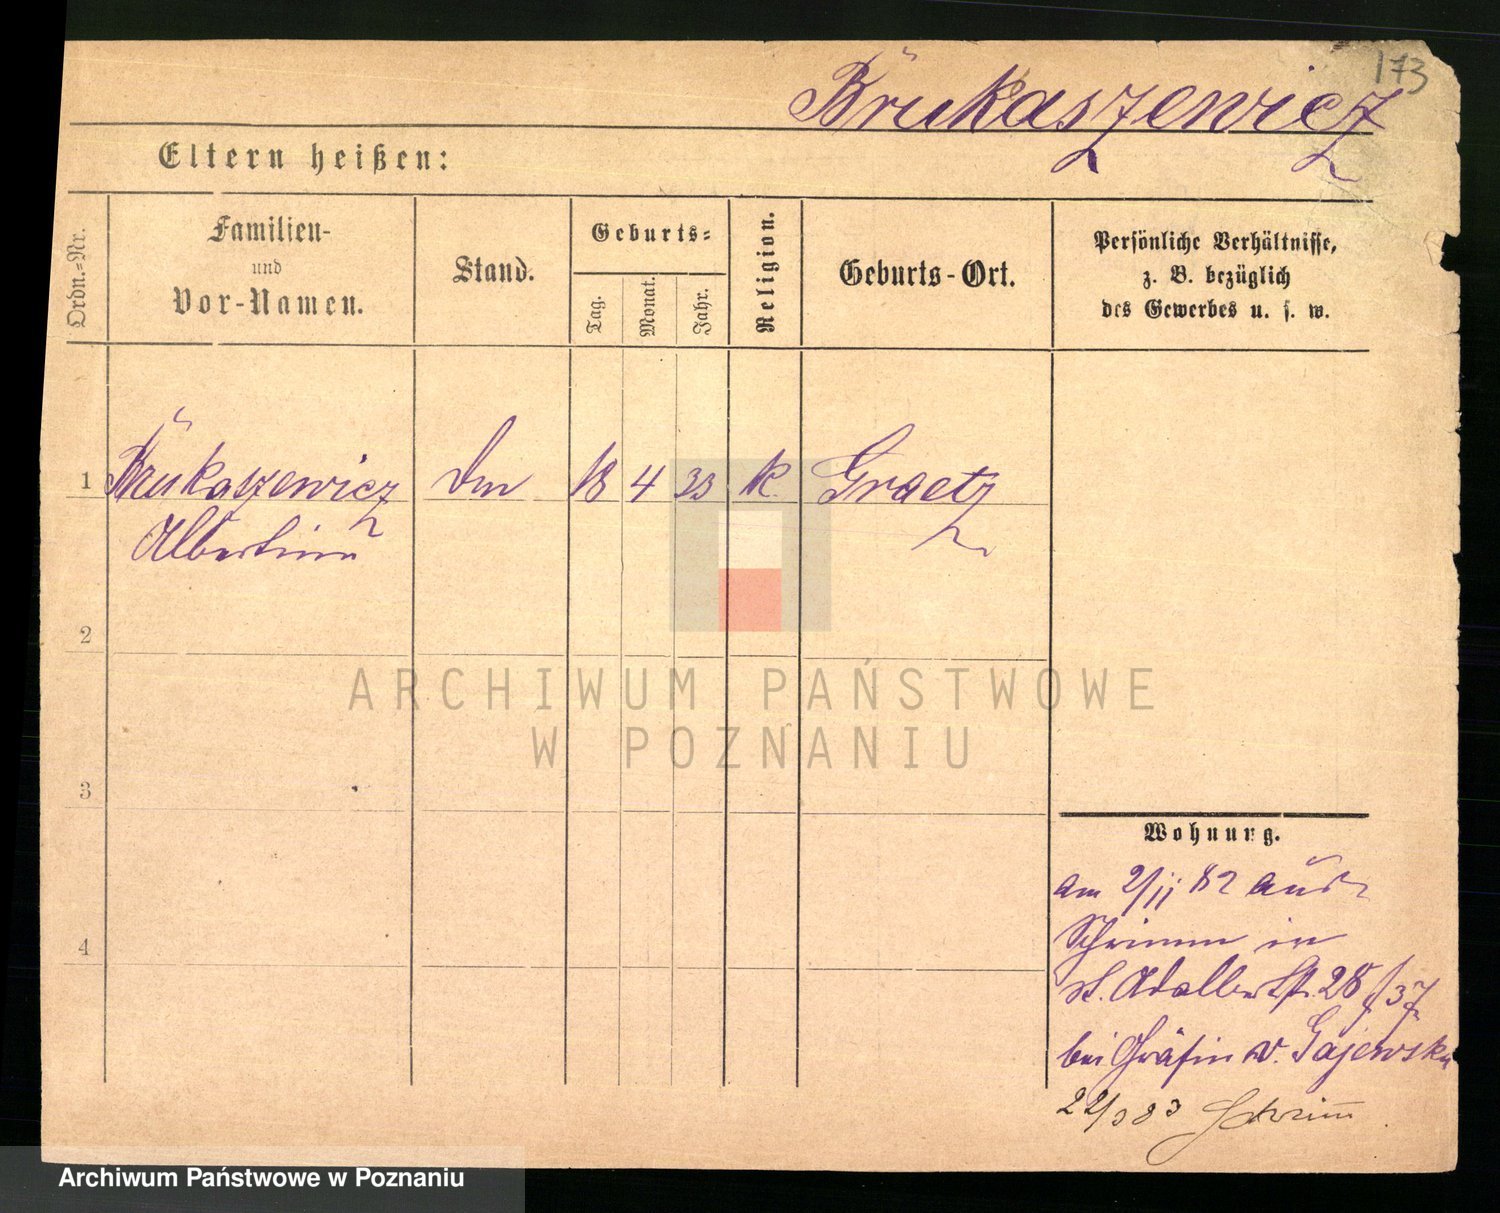 173
Brukaszewicz
Eltern heißen:
Ordn.=Nr.
Familien-
und
Vor-Namen.
Stand.
Geburts=
Tag.
Monat.
Jahr.
Religion.
Geburts-Ort.
Persönliche Verhältnisse,
z. B. bezüglich
des Gewerbes u. s. w.
1 Brukaszewicz 18 4 33 k. Graetz
Albertine
2
3
4
Wohnung.
am 2/11 82 aus
Schrimm in
St. Adalbertstr. 28
bei Gräfin v. Gajewska
22/3 83 Schrimm
ARCHIWUM PAŃSTWOWE
W POZNANIU
Archiwum Państwowe w Poznaniu